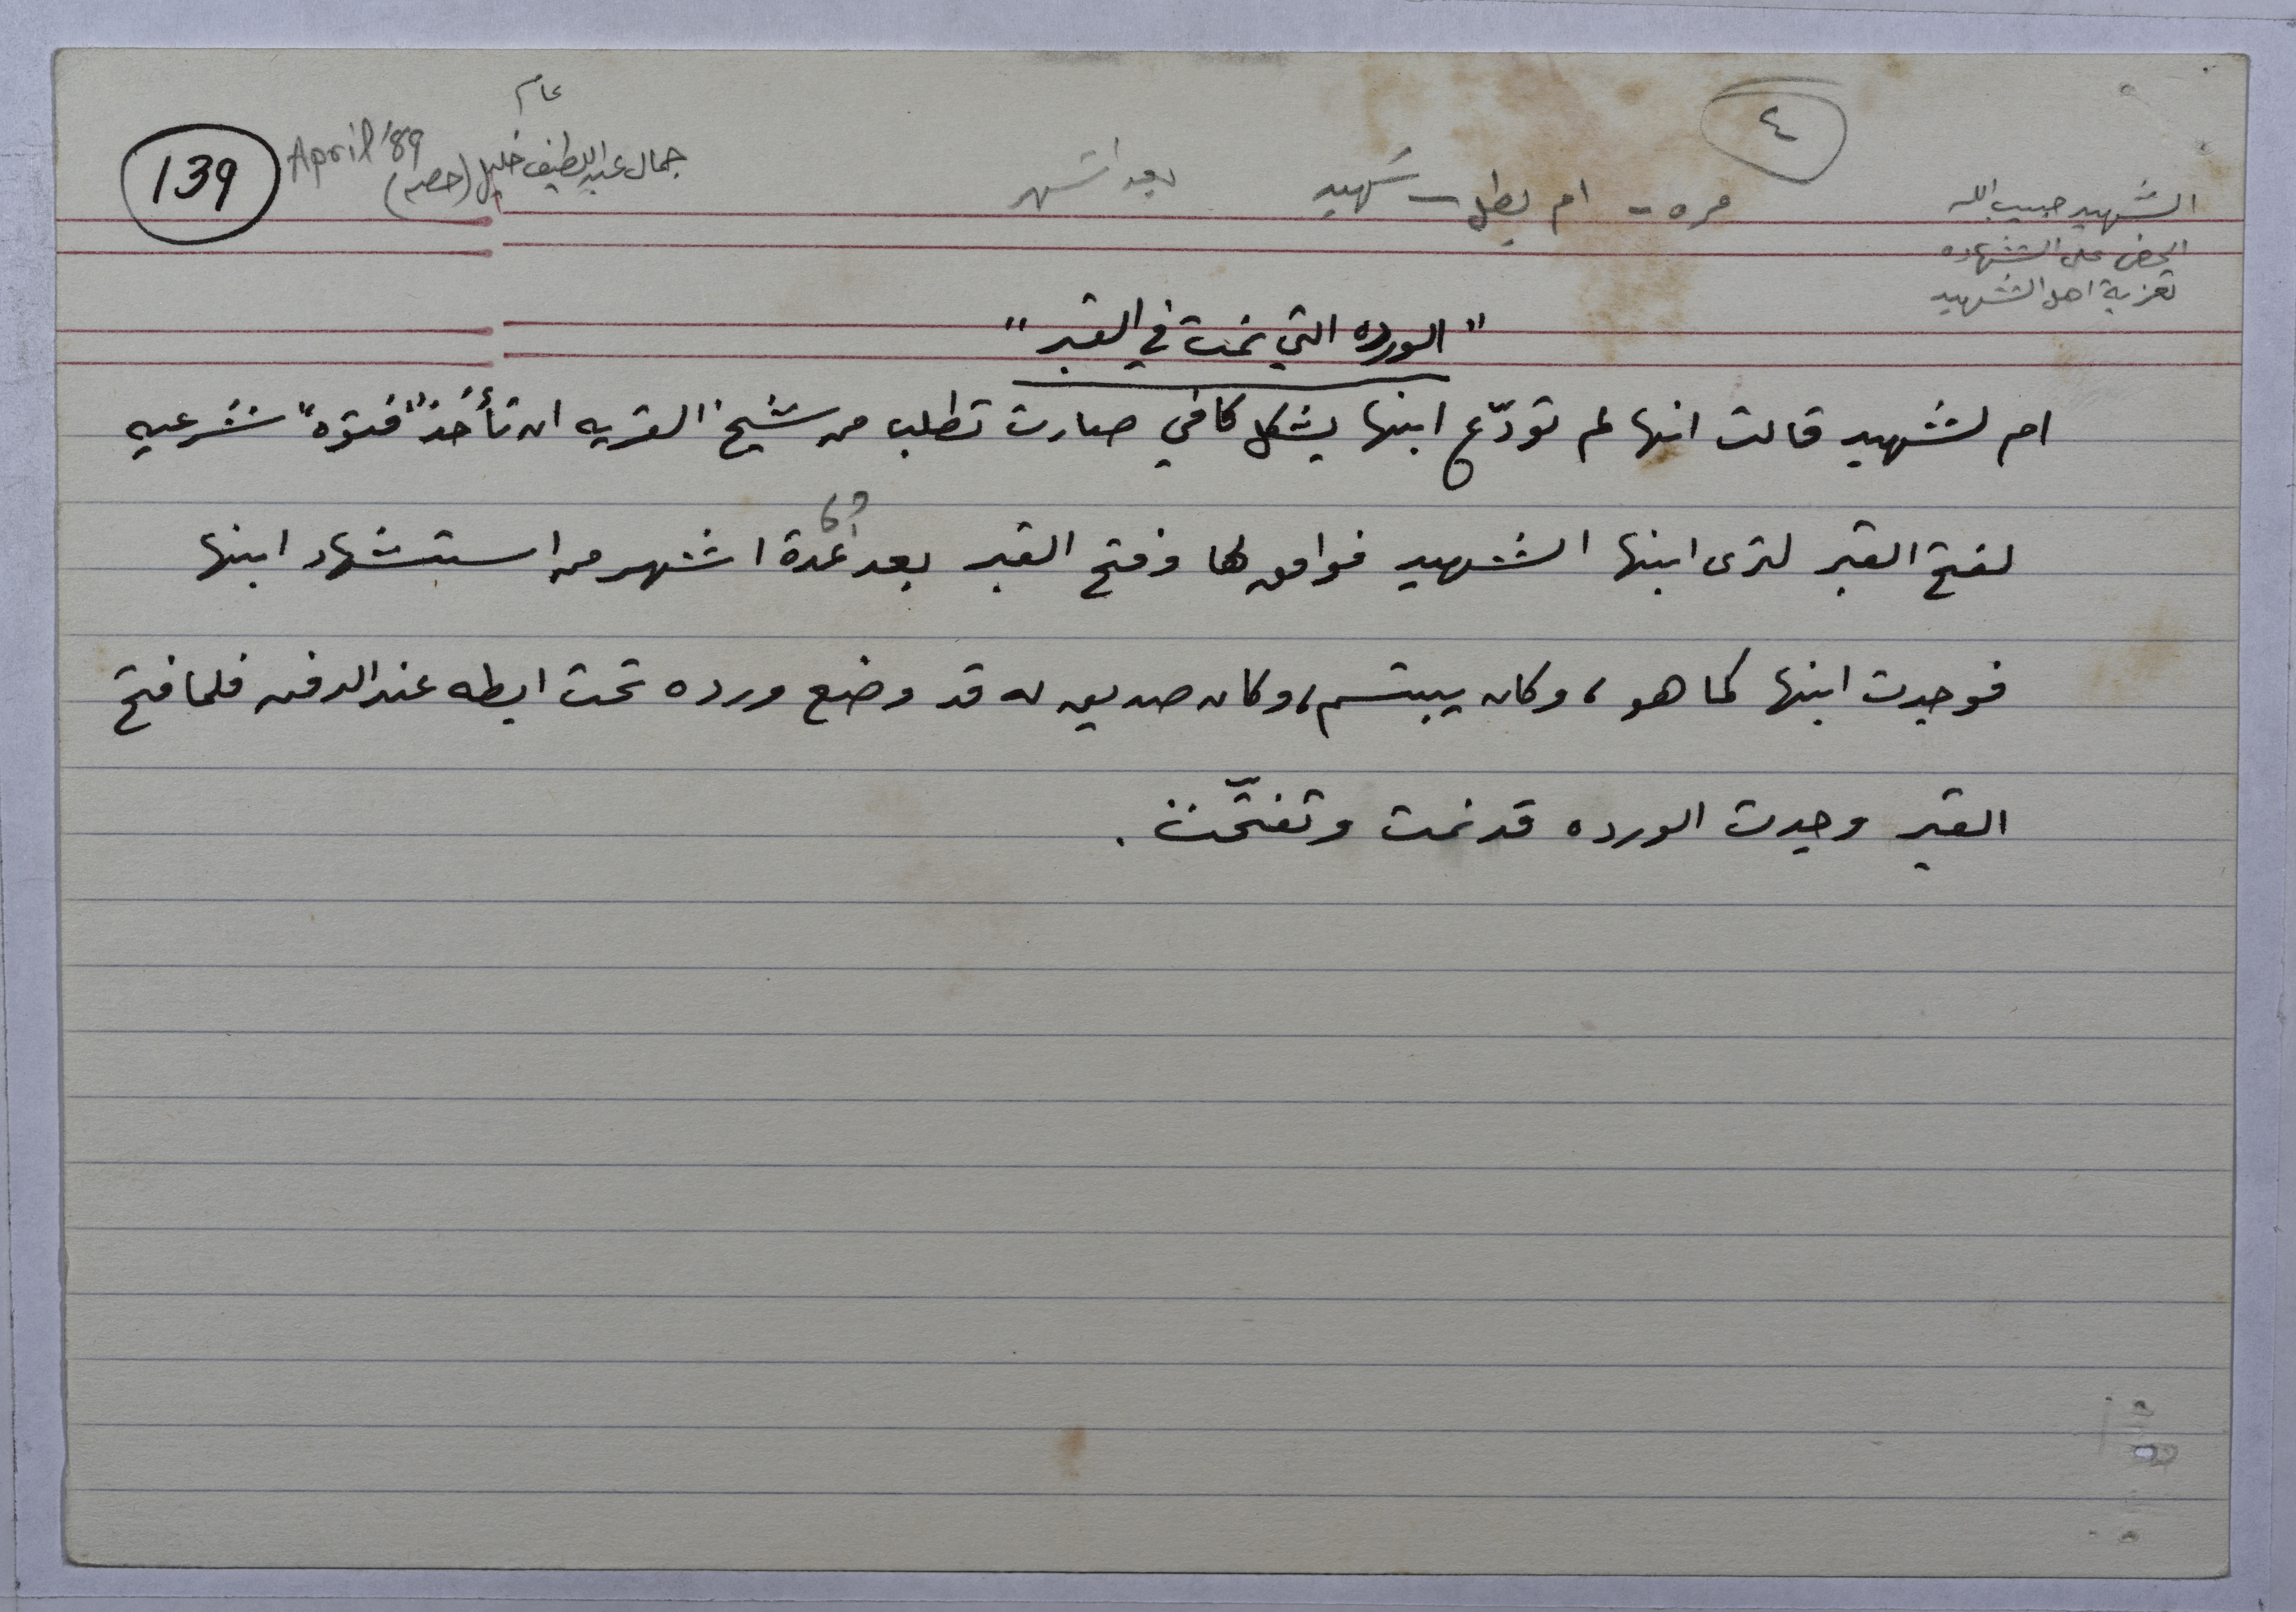 ٤
عام
139
April '89
جمال عبد اللطيف خليل (حصه)
مره - ام بطل - شهيد
بعد اشهر
الشهيد حبيب الله
الحض على الشهاده
تعزية اهل الشهيد
"الورده التي نمت في القبر"
ام لشهيد قالت انها لم تودّع ابنها بشكل كافي صارت تطلب من شيخ القريه ان تأخذ "فتوه" شرعيه
لفتح القبر لترى ابنها الشهيد فوافق لها وفتح القبر بعد عدة اشهر من استشهاد ابنها
فوجدت ابنها كما هو، وكان يبتسم، وكان صديق له قد وضع ورده تحت ابطه عند الدفن فلما فتح
القبر وجدت الورده قد نمت وتفتّحت.